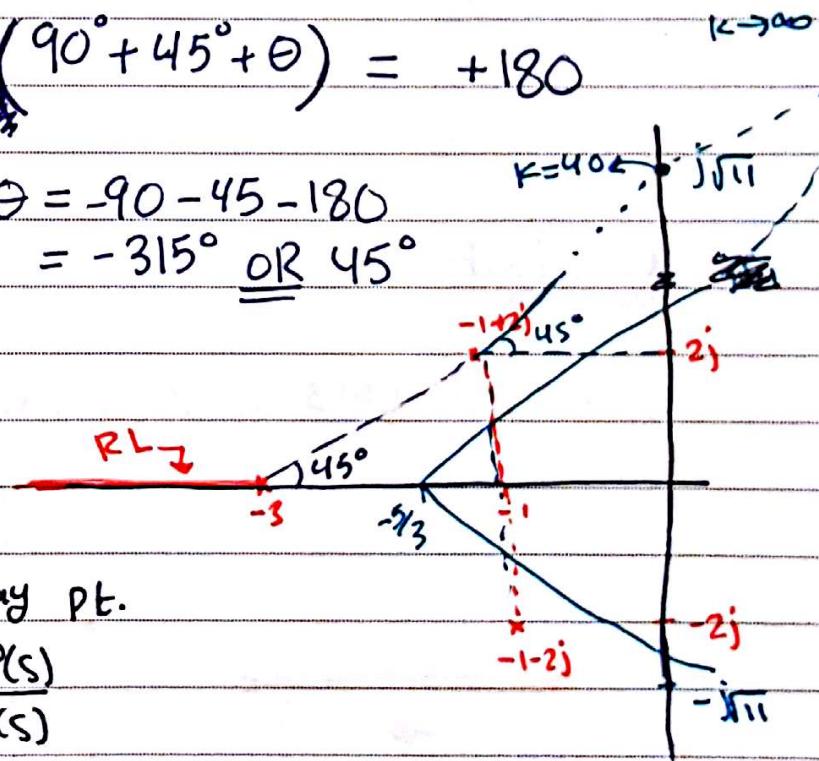 (90° + 45° + θ) = +180
K→∞
θ = -90 - 45 - 180
= -315° OR 45°
K=40
j√11
-1+2j
45°
2j
RL
45°
-3
-5/3
-1
y pt.
-2j
-1-2j
(s)
(s)
-j√11